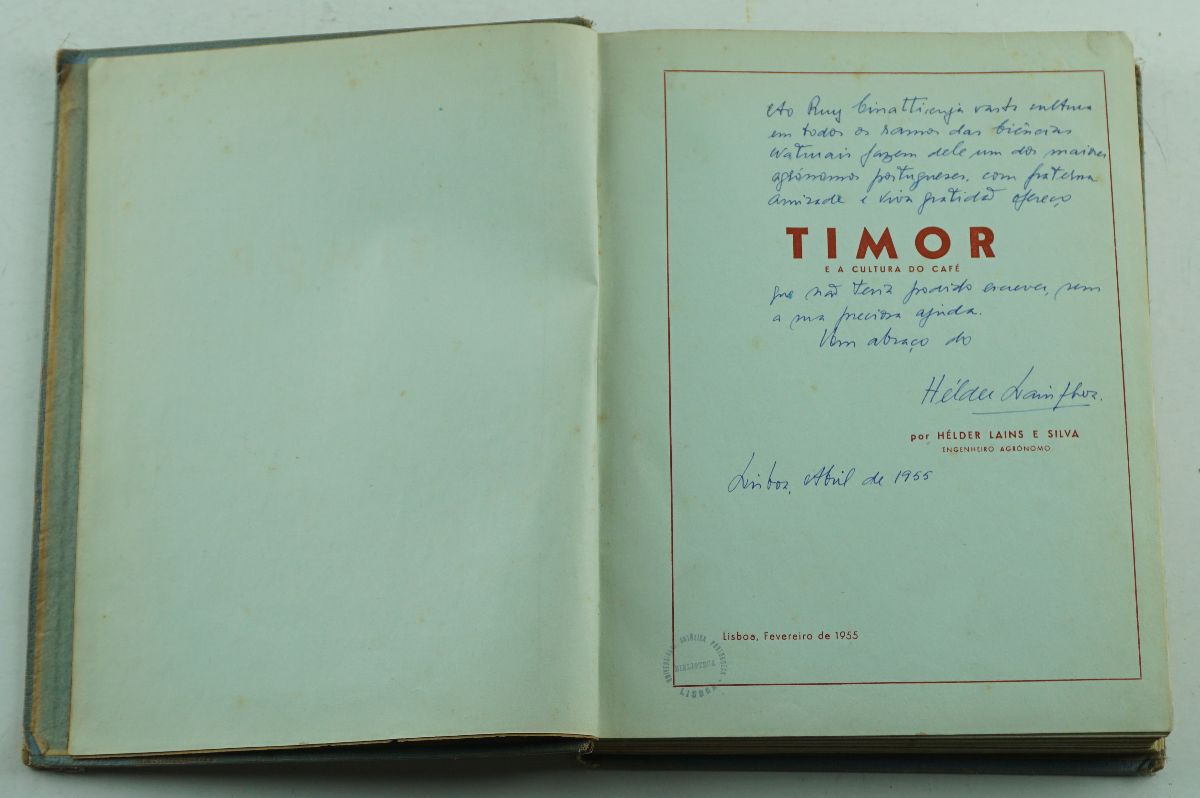 Ao Ruy Cinatti cuja vasta cultura
em todos os ramos das Ciências
Naturais fazem dele um dos maiores
agrónomos portugueses, com fraterna
amizade e viva gratidão ofereço
TIMOR
E A CULTURA DO CAFÉ
que não teria podido escrever, sem
a sua preciosa ajuda.
Um abraço do
Hélder Lains e Silva
por HÉLDER LAINS E SILVA
ENGENHEIRO AGRÓNOMO
Lisboa, Abril de 1955
Lisboa, Fevereiro de 1955
UNIVERSIDADE CATÓLICA PORTUGUESA
BIBLIOTECA
LISBOA